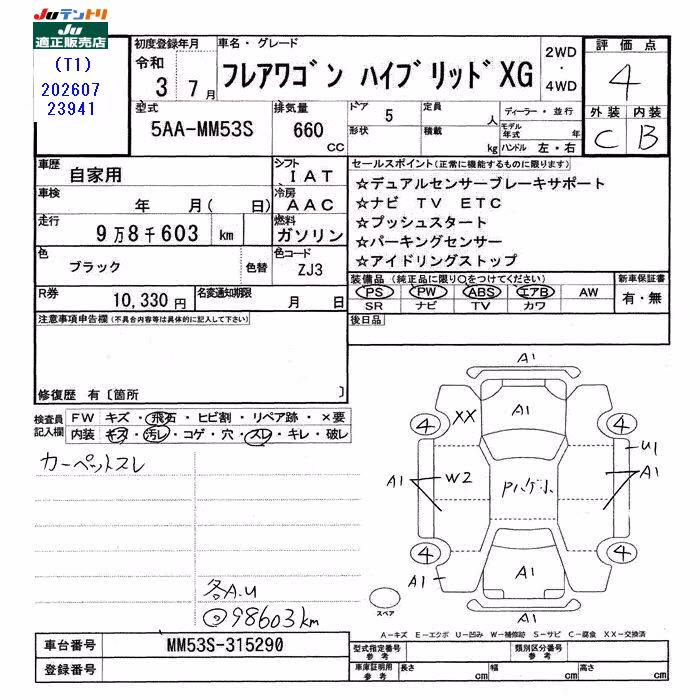 JUテントリ
JU
適正販売店
(T1)
202607
23941
初度登録年月
令和
3 7月
車名・グレード
フレアワゴン ハイブリッド XG
2WD
・
4WD
評価点
4
外装 内装
C B
型式
5AA-MM53S
排気量
660
CC
ドア
5
形状
定員
人
積載
kg
ディーラー・並行
モデル年式 年
ハンドル 左・右
車歴
自家用
シフト
IAT
車検
年 月( 日)
冷房
AAC
走行
9万8千603 km
燃料
ガソリン
色
ブラック
色替
色コード
ZJ3
R券
10,330円
名変通知期限
月 日
セールスポイント(正常に機能するものに限ります)
☆デュアルセンサーブレーキサポート
☆ナビ TV ETC
☆プッシュスタート
☆パーキングセンサー
☆アイドリングストップ
装備品 (純正品に限り○をつけてください)
PS PW ABS エアB AW
SR ナビ TV カワ
新車保証書
有・無
後日品
注意事項申告欄(不具合内容等は具体的に記入して下さい)
修復歴 有〔箇所 〕
検査員
記入欄
FW キズ・飛石・ヒビ割・リペア跡・×要
内装 キズ・汚レ・コゲ・穴・スレ・キレ・破レ
カーペットスレ
各A.U
98603km
A1
XX
A1
4
4
U1
A1
W2
Pハゲ小
A1
4
4
A1
A1
A1
スペア
A-キズ E-エクボ U-凹み W-補修跡 S-サビ C-腐食 XX-交換済
車台番号
MM53S-315290
登録番号
型式指定番号
参考
類別区分番号
参考
車庫証明用
参考
長さ cm
幅 cm
高さ cm